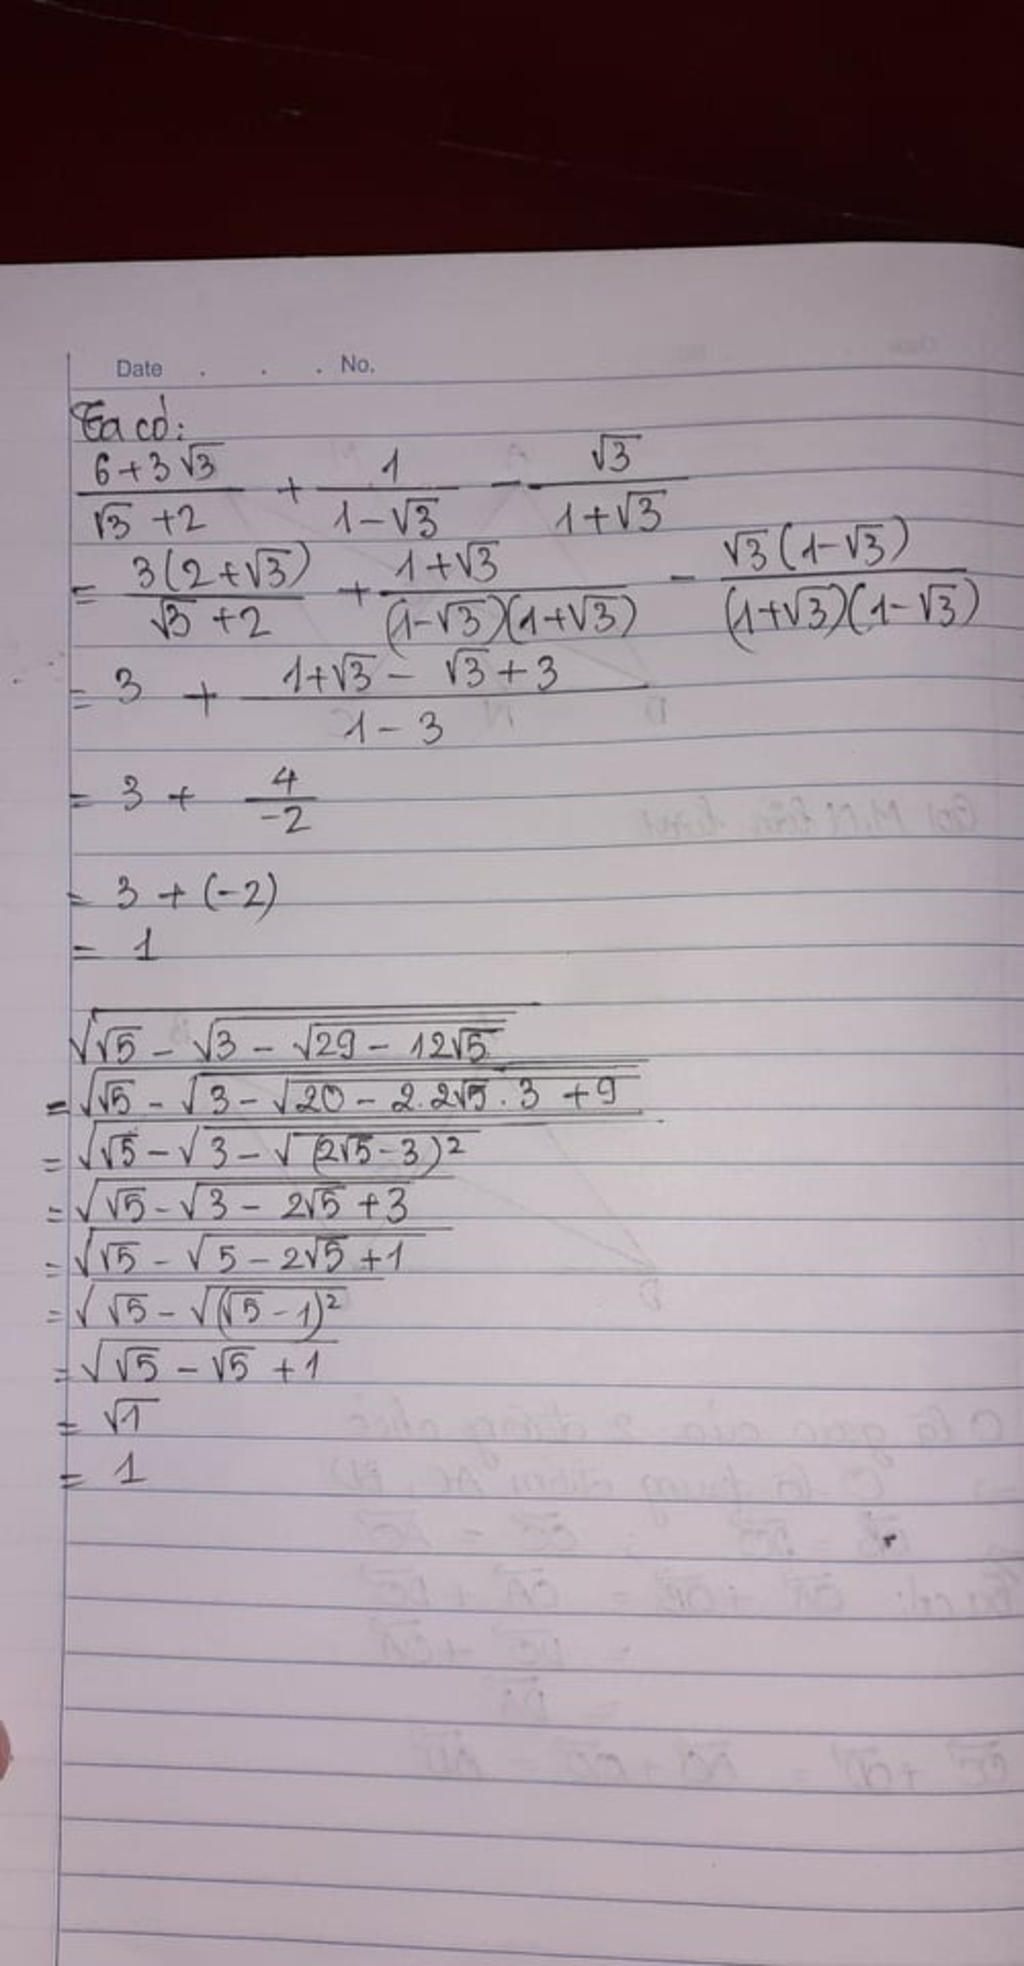 Date . . . No.
Ta có:
(6+3√3)/(√3+2) + 1/(1-√3) - √3/(1+√3)
= 3(2+√3)/(√3+2) + (1+√3)/((1-√3)(1+√3)) - √3(1-√3)/((1+√3)(1-√3))
= 3 + (1+√3-√3+3)/(1-3)
= 3 + 4/(-2)
= 3 + (-2)
= 1
√(√5 - √(3 - √(29 - 12√5)))
= √(√5 - √(3 - √(20 - 2.2√5.3 + 9)))
= √(√5 - √(3 - √((2√5-3)²)))
= √(√5 - √(3 - 2√5 + 3))
= √(√5 - √(5 - 2√5 + 1))
= √(√5 - √((√5-1)²))
= √(√5 - √5 + 1)
= √1
= 1